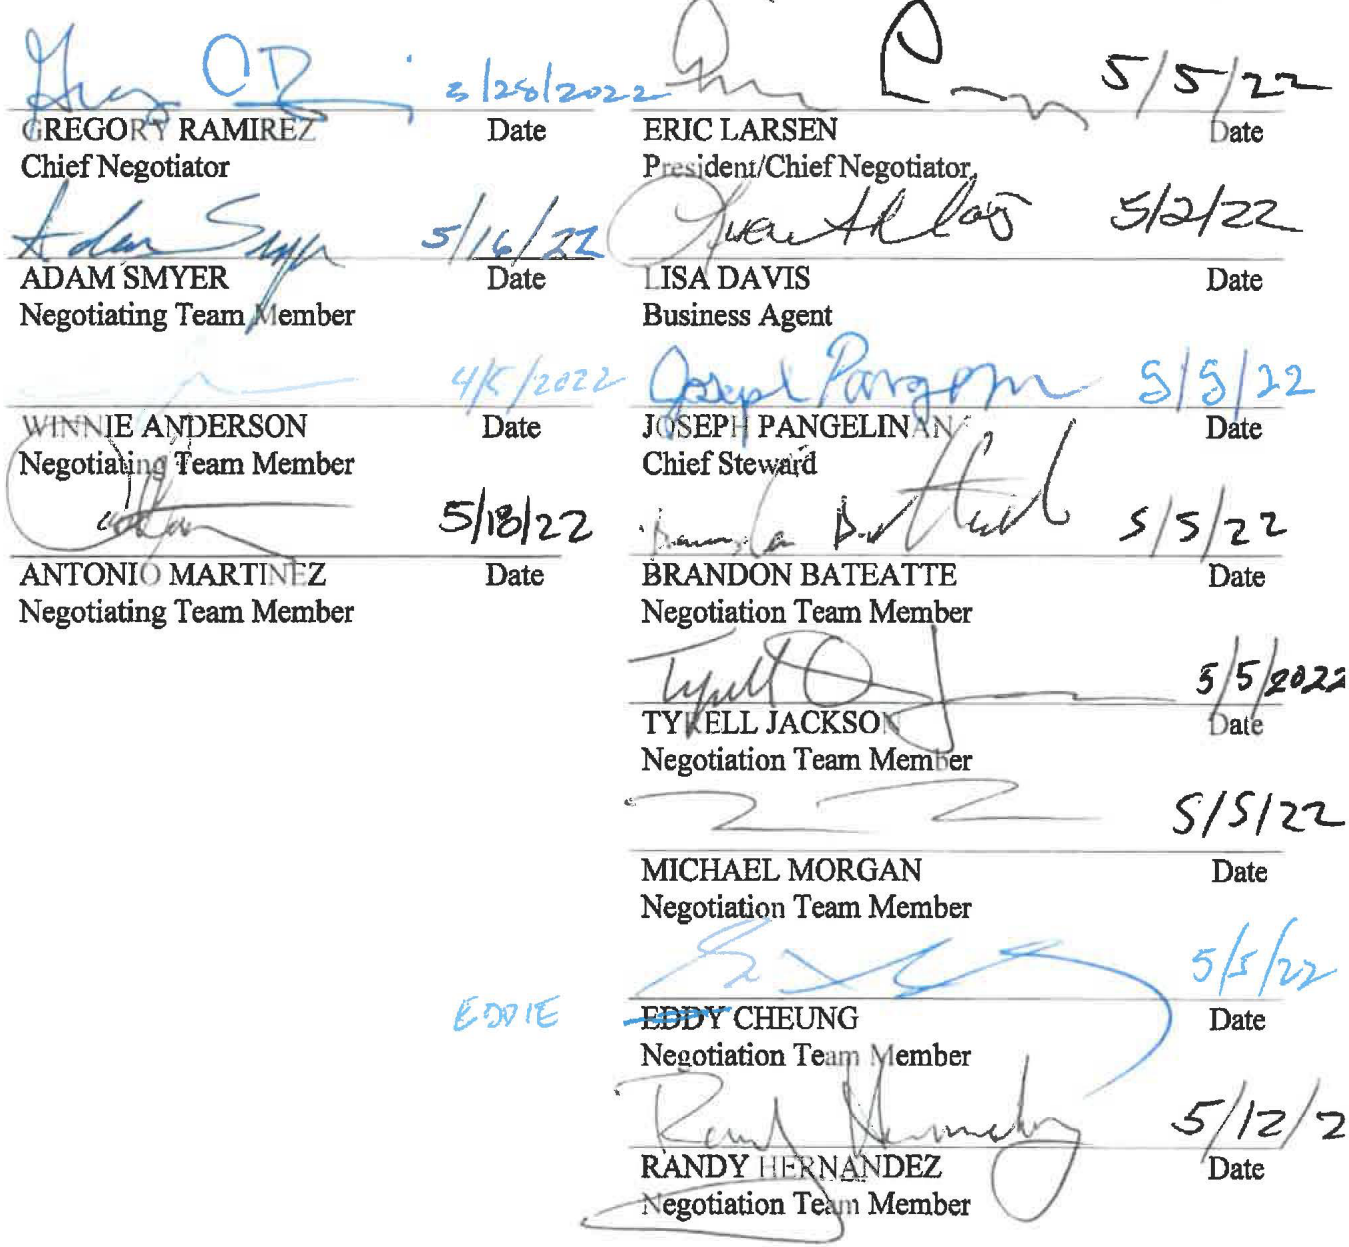 3/28/2022
GREGORY RAMIREZ Date
Chief Negotiator
Adam Smyer 5/16/22
ADAM SMYER Date
Negotiating Team Member
2022
WINNIE ANDERSON Date
Negotiating Team Member
5/18/22
ANTONIO MARTINEZ Date
Negotiating Team Member
5/5/22
ERIC LARSEN Date
President/Chief Negotiator
5/2/22
LISA DAVIS Date
Business Agent
Joseph 5/5/22
JOSEPH PANGELINAN Date
Chief Steward
5/5/22
BRANDON BATEATTE Date
Negotiation Team Member
Tyrell 5/5/2022
TYRELL JACKSON Date
Negotiation Team Member
5/5/22
MICHAEL MORGAN Date
Negotiation Team Member
5/5/22
EDDIE EDDY CHEUNG Date
Negotiation Team Member
Randy 5/12/2
RANDY HERNANDEZ Date
Negotiation Team Member